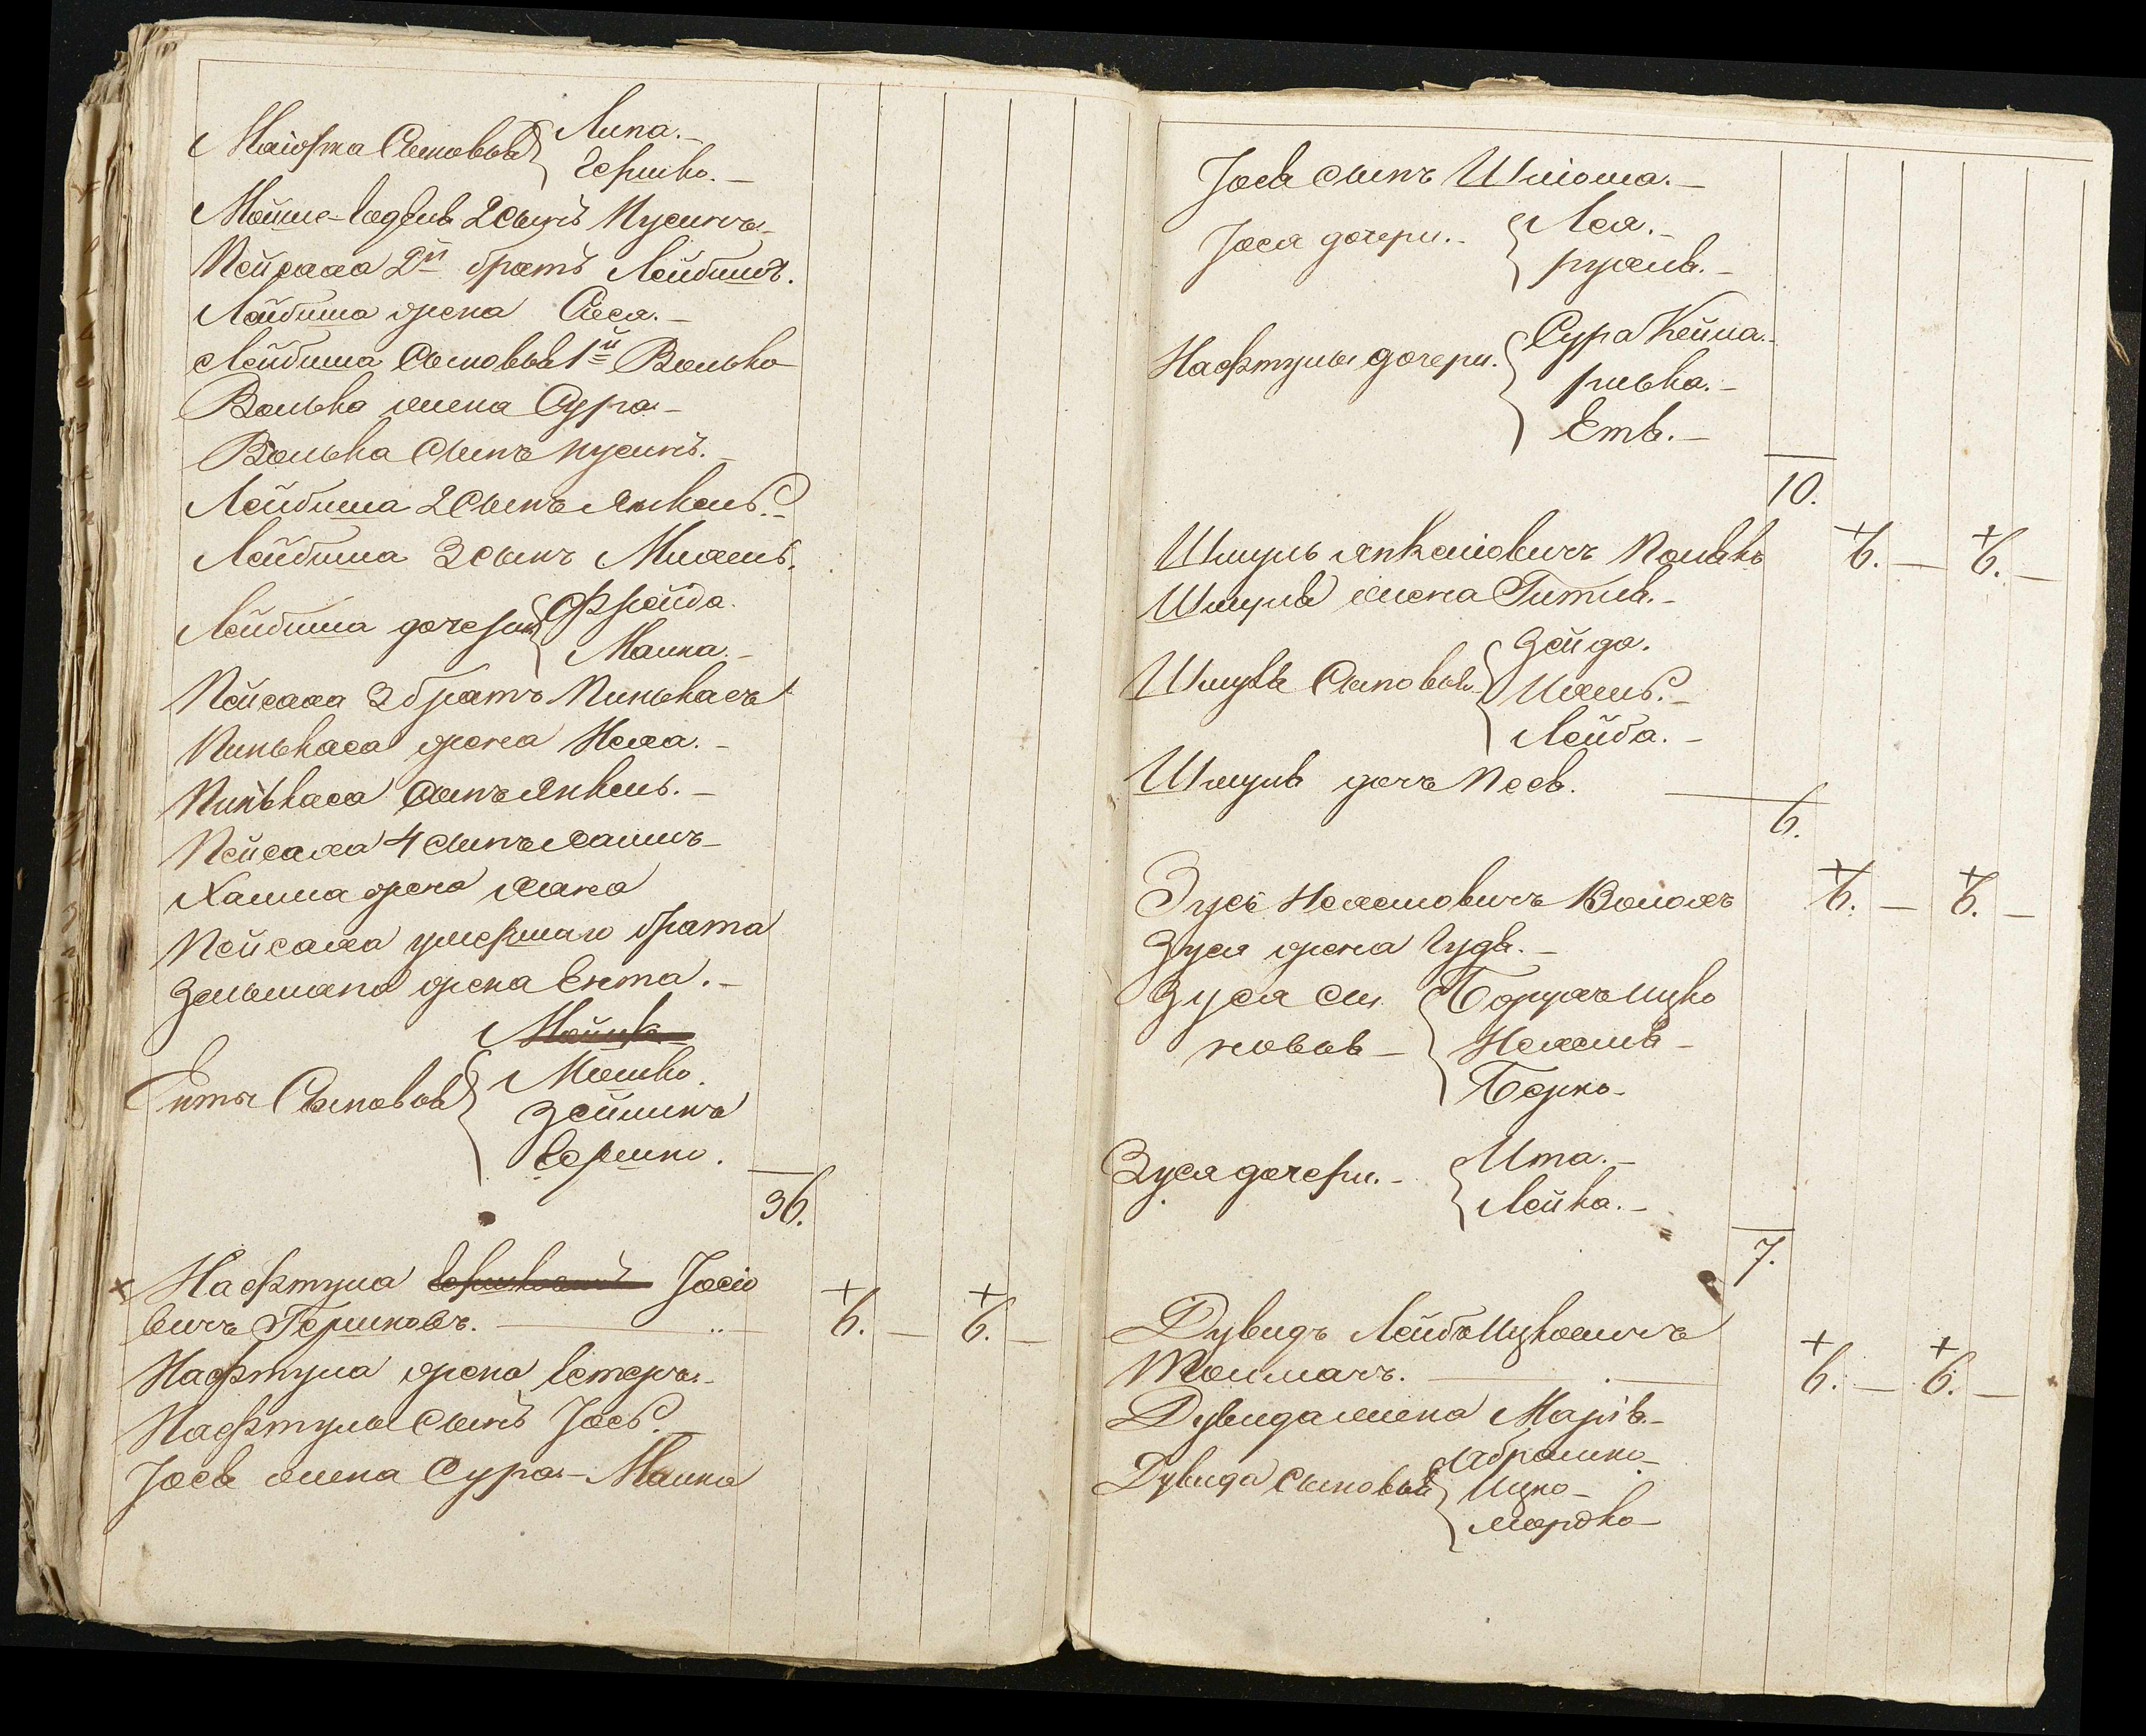 Маіорка Сыновья { Липа. –
Гершко. –
Мойше-Гедель 2 сынъ Нусинъ –
Пейсаха 2й братъ Лейбишъ.
Лейбиша жена Ася. –
Лейбиша Сыновья 1й Волько
Волька жена Сура –
Волька Сынъ Нусинъ. –
Лейбиша 2 Сынъ Янкель. –
Лейбиша 3 сынъ Михель.
Лейбиша дочери { Фрейда.
Малка. –
Пейсаха 3 братъ Пинькасъ
Пинькаса жена Неха. –
Пинькаса Сынъ Янкель. –
Пейсаха 4 сынъ Хаимъ –
Хаима жена Хана
Пейсаха умершаго брата
Зельмана жена Ента. –
Енты Сыновья { Мошко.
Зейликъ
Гершко.
36.
Нафтула Іосіо
вичъ Гершковъ. – 6. – 6. –
Нафтула жена Естеръ. –
Нафтулы Сынъ Іось. –
Іося жена Сура – Малка
Іося сынъ Шліома. –
Іося дочери. – { Лея. –
рухля. –
Нафтулы дочери. { Сура Кейла. –
ривка. –
Етя. –
10.
Шмуль Янкеліовичъ Полякъ 6. – 6. –
Шмуля жена Гитля. –
Шмуля Сыновья { Зейда.
Ихель. –
Лейба. –
Шмуля дочь Песя.
6.
Зусь Нехемовичъ Волохъ 6. – 6. –
Зуся жена Гудя. –
Зуся сы { Борухъ Ицко
новья – Нехемя –
Берко –
Зуся дочери. – { Ита. –
Лейка. –
7.
Дувидъ Лейба Ицковичъ
Толмачъ. – 6. – 6. –
Дувида жена Марія –
Дувида Сыновья { Абрамко –
Ицко –
Мордко –